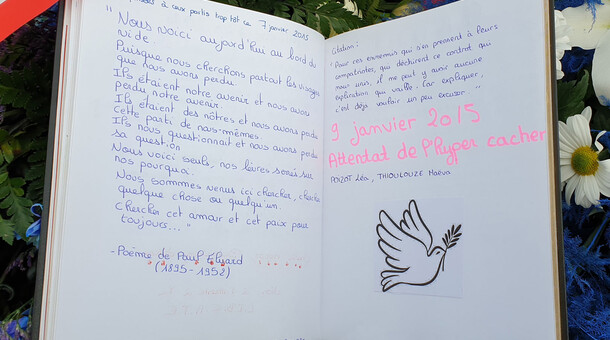 à ceux partis trop tôt ce 7 janvier 2015
" Nous voici aujourd'hui au bord du
vide
Puisque nous cherchons partout les visages
que nous avons perdu
Ils étaient notre avenir et nous avons
perdu notre avenir.
Ils étaient des nôtres et nous avons perdu
cette part de nous-mêmes.
Ils nous questionnait et nous avons perdu
sa question
Nous voici seuls, nos lèvres serrés sur
nos pourquoi.
Nous sommes venus ici chercher, chercher
quelque chose ou quelqu'un
chercher cet amour et cet paix pour
toujours... "
- Poème de Paul Eluard
(1895-1952)
Citation:
" Pour ces ennemis qui s'en prennent à leurs
compatriotes, qui déchirent ce contrat qui
nous unit, il ne peut y avoir aucune
explication qui vaille. Car expliquer,
c'est déjà vouloir un peu excuser "
9 janvier 2015
Attentat de l'Hyper cacher
POIZOT Léa, THIOULOUZE Maëva